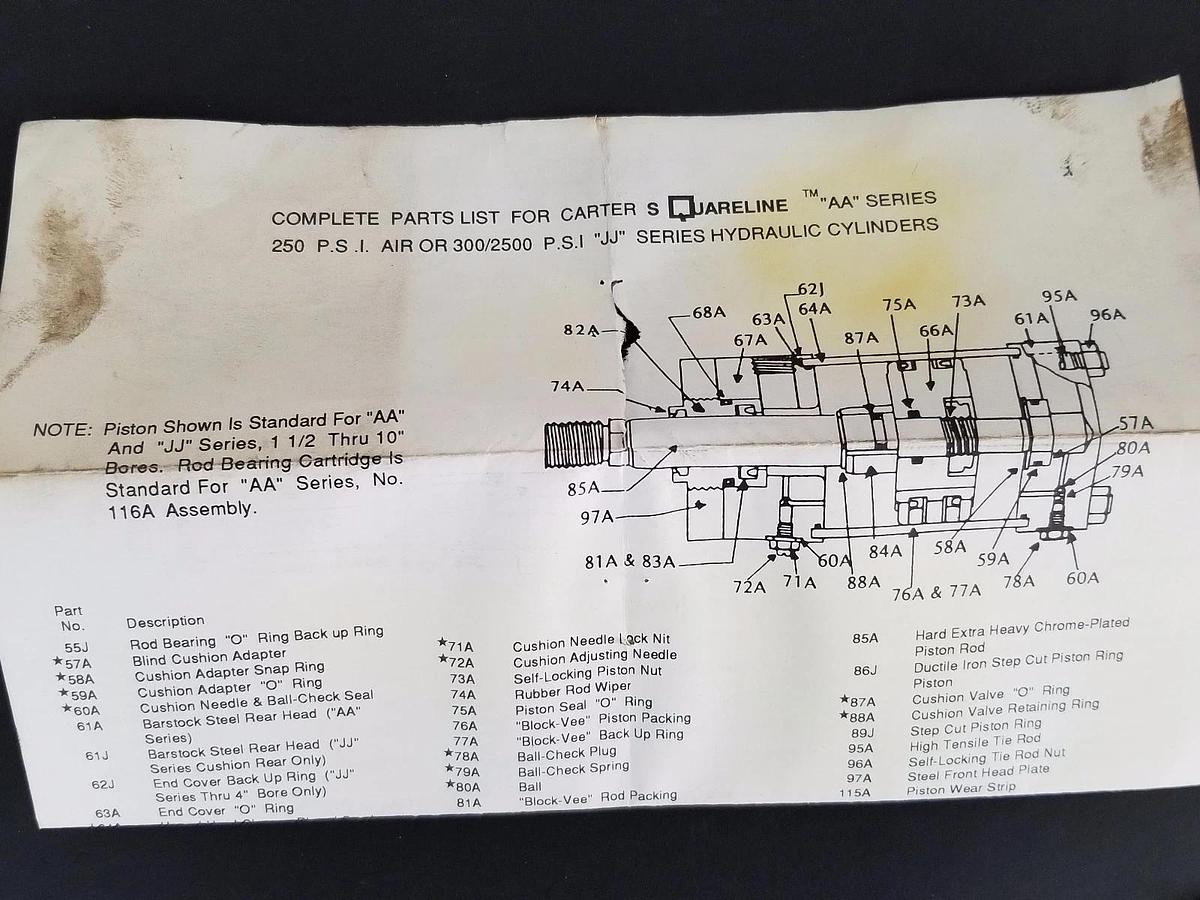 COMPLETE PARTS LIST FOR CARTER SQUARELINE ™ "AA" SERIES
250 P.S.I. AIR OR 300/2500 P.S.I "JJ" SERIES HYDRAULIC CYLINDERS
62J
68A
63A
64A
75A
73A
95A
82A
67A
87A
66A
61A
96A
74A
NOTE: Piston Shown Is Standard For "AA"
And "JJ" Series, 1 1/2 Thru 10"
Bores. Rod Bearing Cartridge Is
Standard For "AA" Series, No.
116A Assembly.
57A
80A
79A
85A
97A
81A & 83A
72A
71A
60A
88A
84A
76A & 77A
58A
59A
78A
60A
Part
No. Description
55J Rod Bearing "O" Ring Back up Ring
★57A Blind Cushion Adapter
★58A Cushion Adapter Snap Ring
★59A Cushion Adapter "O" Ring
★60A Cushion Needle & Ball-Check Seal
61A Barstock Steel Rear Head ("AA"
Series)
61J Barstock Steel Rear Head ("JJ"
Series Cushion Rear Only)
62J End Cover Back Up Ring ("JJ"
Series Thru 4" Bore Only)
63A End Cover "O" Ring
★71A Cushion Needle Lock Nit
★72A Cushion Adjusting Needle
73A Self-Locking Piston Nut
74A Rubber Rod Wiper
75A Piston Seal "O" Ring
76A "Block-Vee" Piston Packing
77A "Block-Vee" Back Up Ring
★78A Ball-Check Plug
★79A Ball-Check Spring
★80A Ball
81A "Block-Vee" Rod Packing
85A Hard Extra Heavy Chrome-Plated
Piston Rod
86J Ductile Iron Step Cut Piston Ring
Piston
★87A Cushion Valve "O" Ring
★88A Cushion Valve Retaining Ring
89J Step Cut Piston Ring
95A High Tensile Tie Rod
96A Self-Locking Tie Rod Nut
97A Steel Front Head Plate
115A Piston Wear Strip